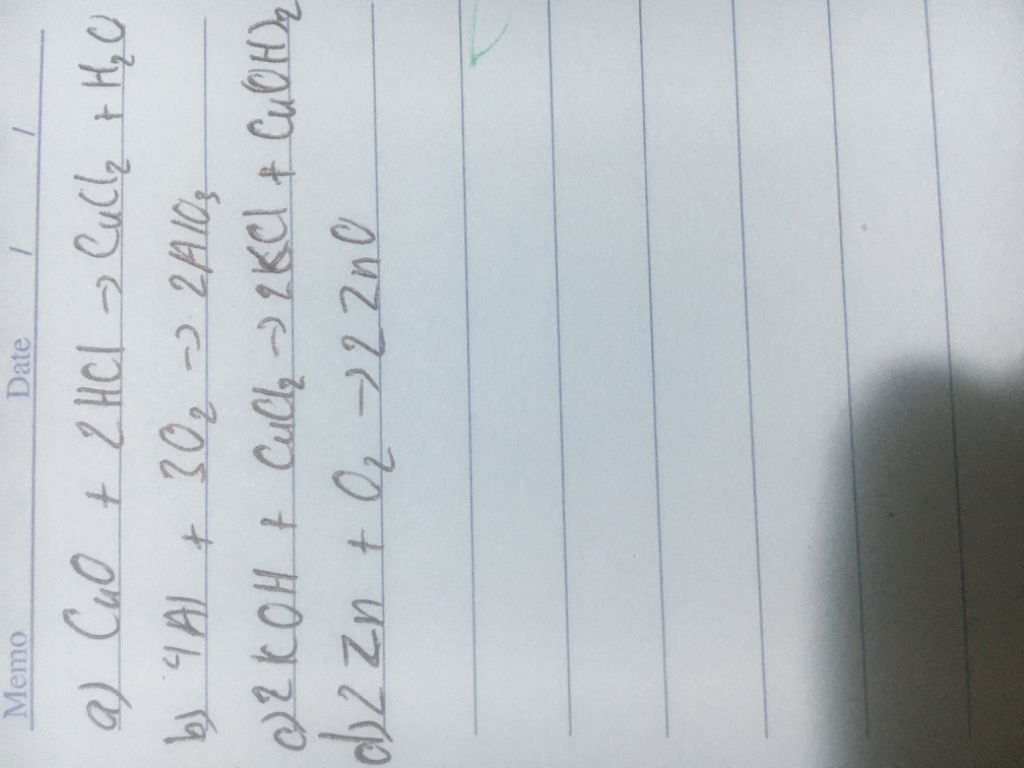 Memo Date / /
a) CuO + 2HCl → CuCl₂ + H₂O
b) 4Al + 3O₂ → 2AlO₃
c) 2KOH + CuCl₂ → 2KCl + Cu(OH)₂
d) 2Zn + O₂ → 2ZnO